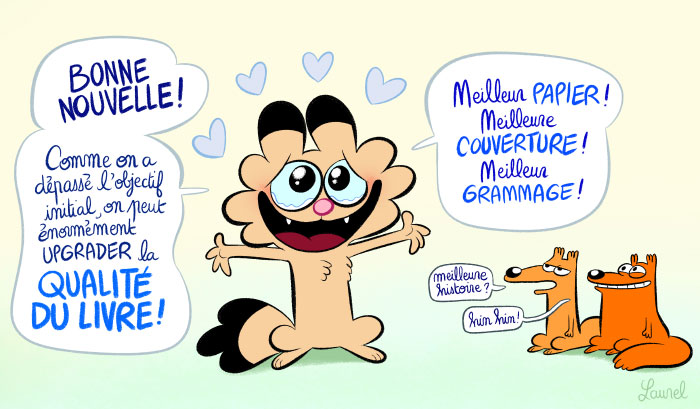 BONNE
NOUVELLE !
Comme on a
dépassé l'objectif
initial, on peut
énormément
UPGRADER la
QUALITÉ
DU LIVRE !
Meilleur PAPIER !
Meilleure
COUVERTURE !
Meilleur
GRAMMAGE !
meilleure
histoire ?
hin hin !
Laurel